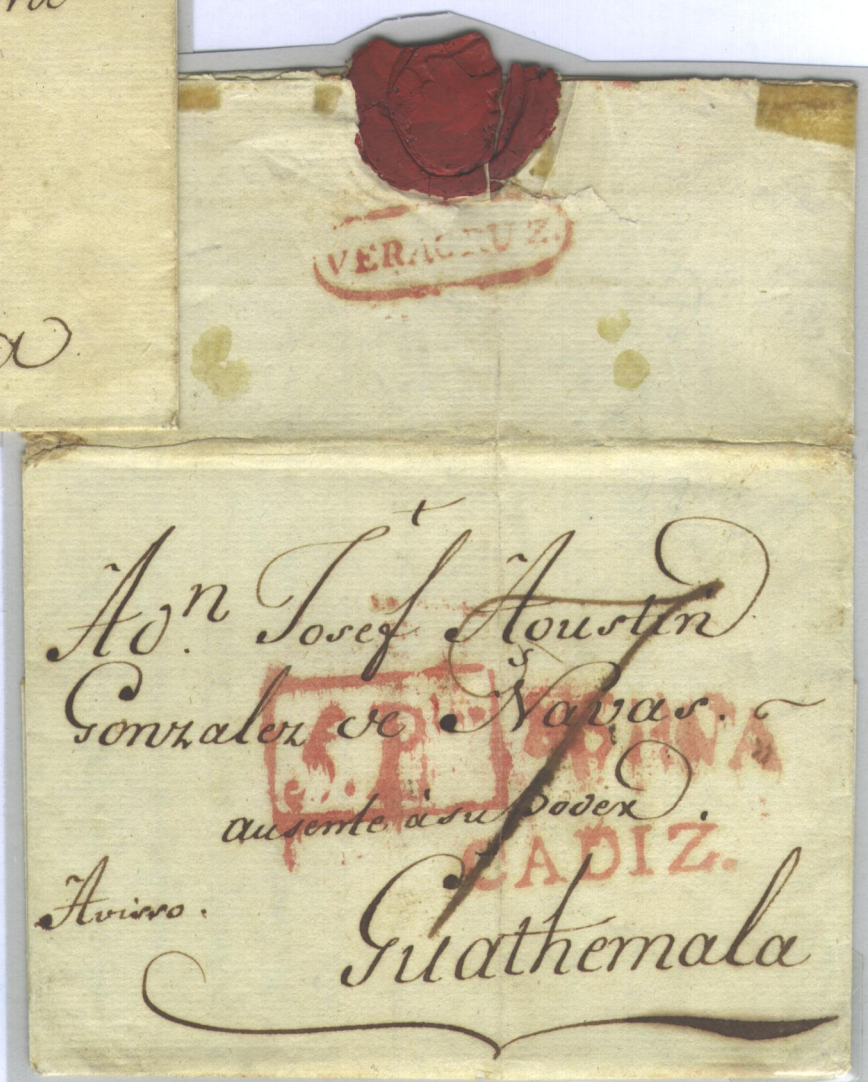 VERACRUZ.
A dn. Josef Agustin
Gonzalez de Navas.
ausente à su Poder.
CADIZ.
Avisso.
Guathemala
7